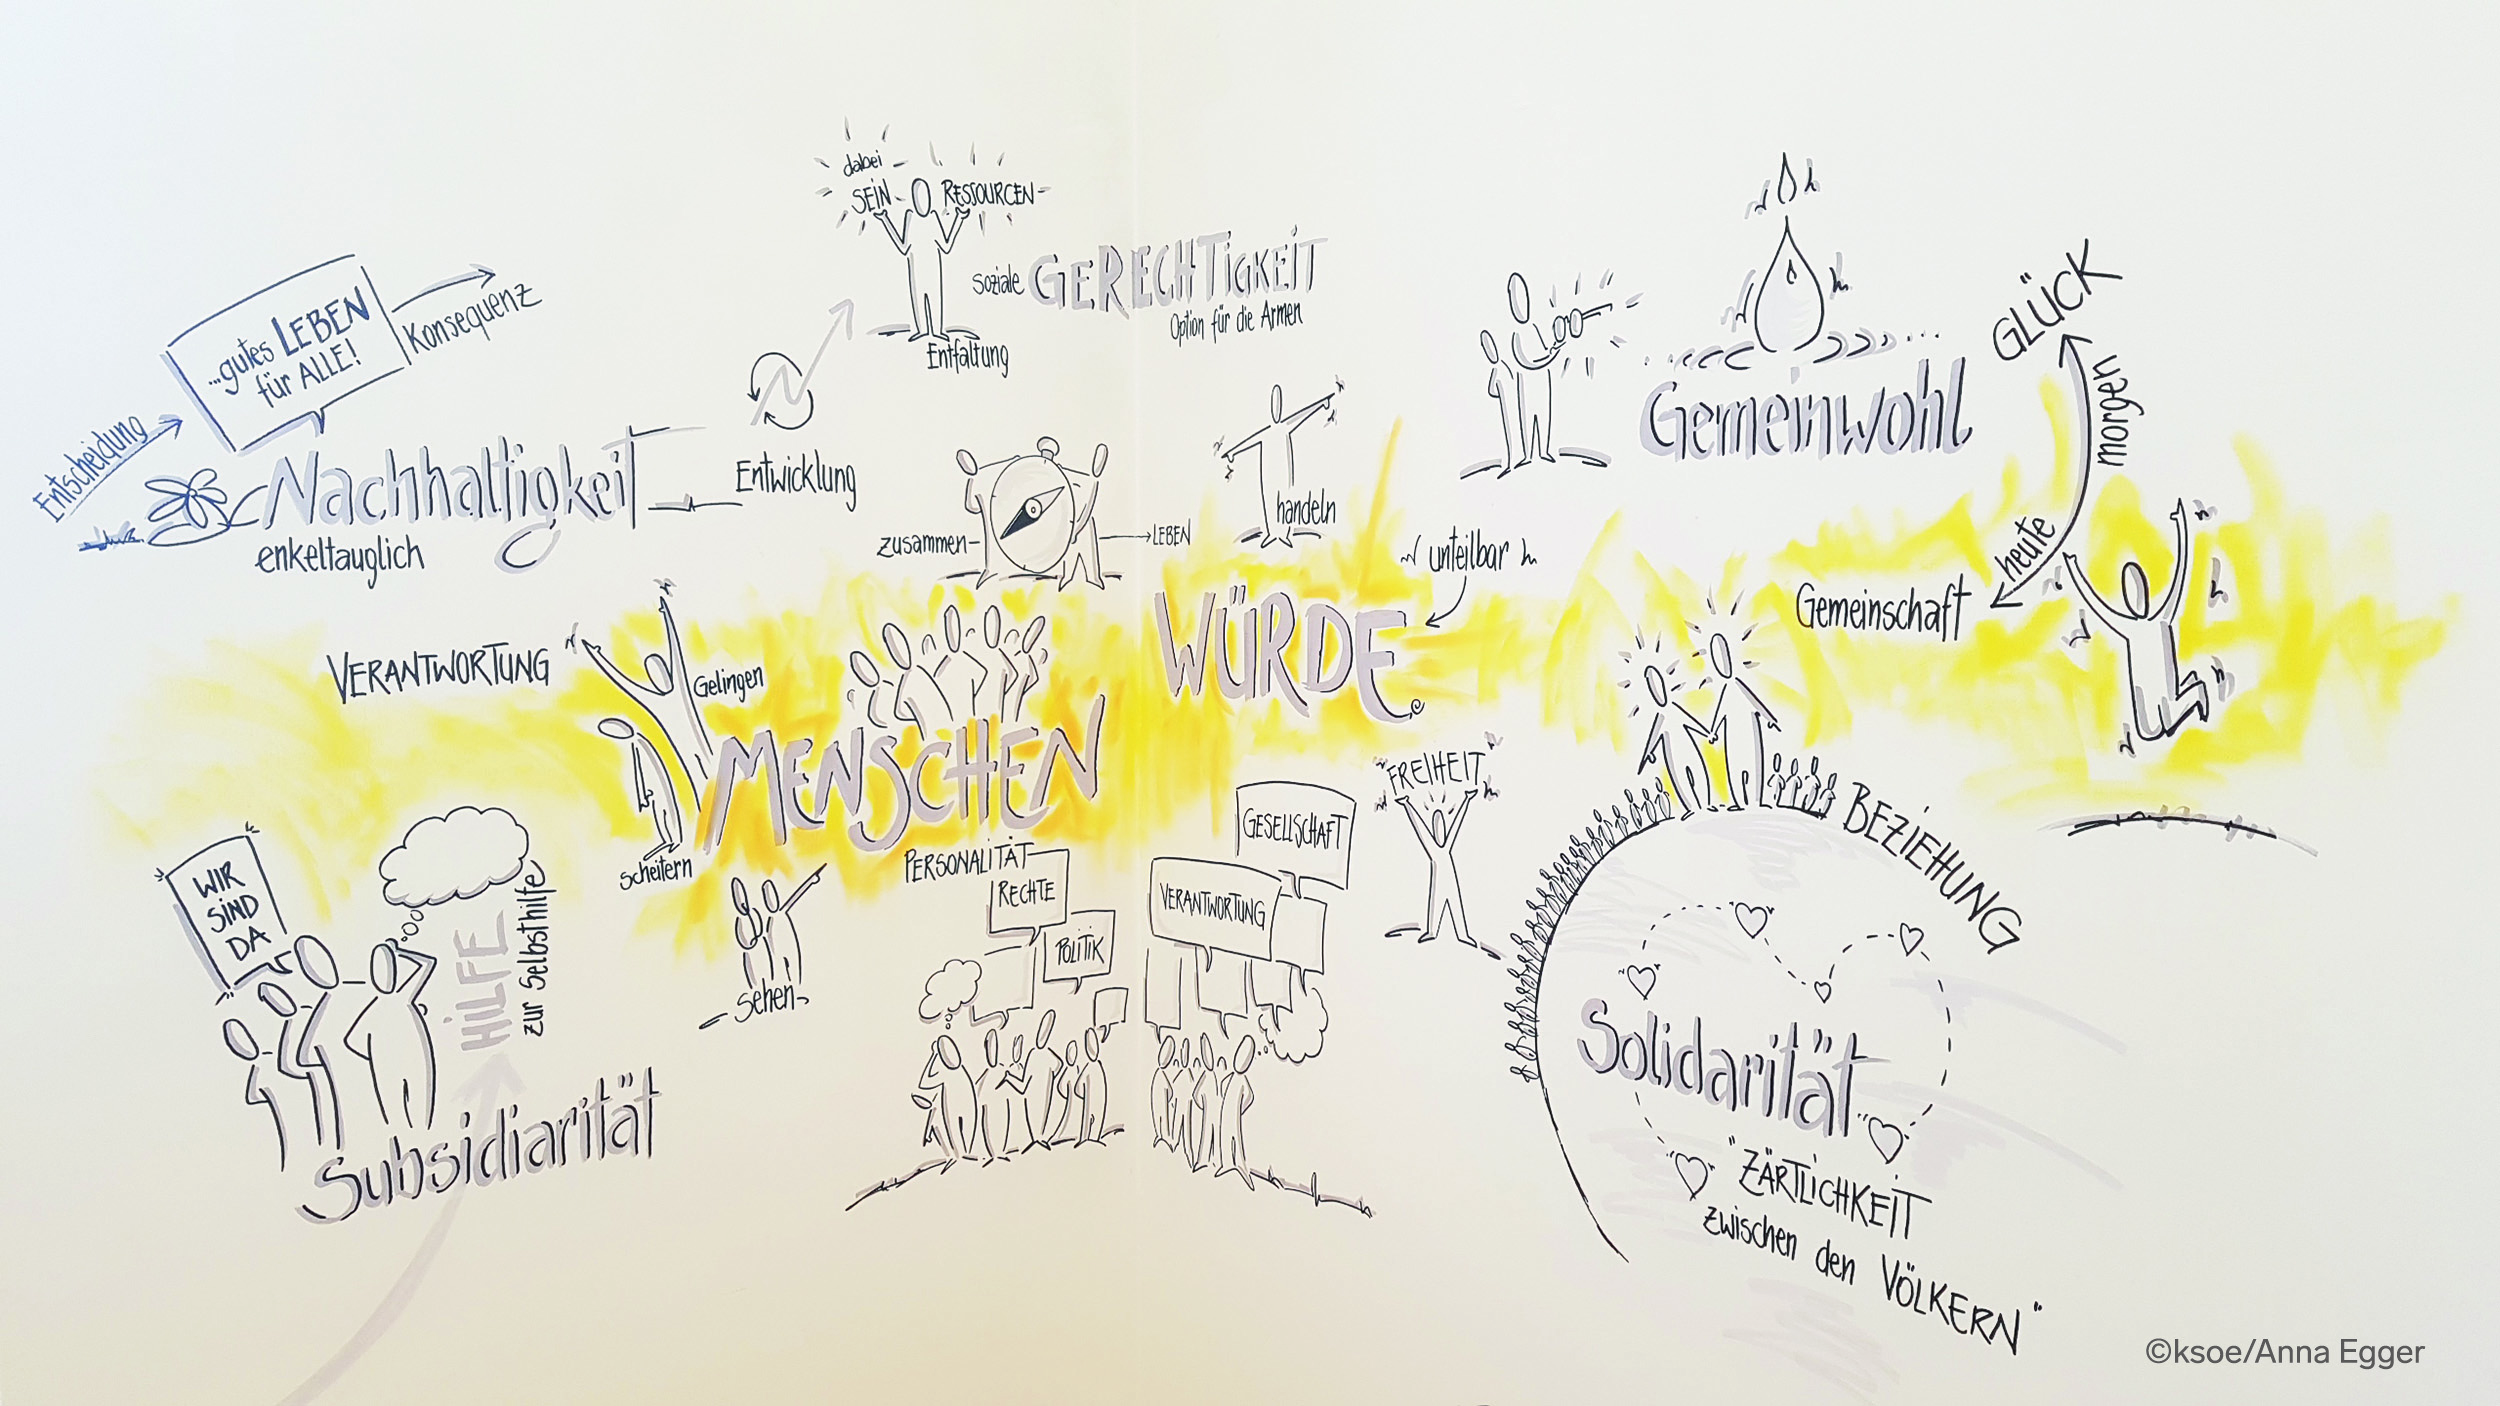 Entscheidung
...gutes LEBEN
für ALLE!
Konsequenz
Nachhaltigkeit
enkeltauglich
Entwicklung
dabei
SEIN
RESSOURCEN
Entfaltung
soziale GERECHTIGKEIT
Option für die Armen
zusammen
LEBEN
handeln
Gemeinwohl
GLÜCK
morgen
heute
Gemeinschaft
VERANTWORTUNG
Gelingen
scheitern
MENSCHEN
WÜRDE
unteilbar
sehen
PERSONALITÄT
RECHTE
POLITIK
VERANTWORTUNG
GESELLSCHAFT
FREIHEIT
WIR
SIND
DA
HILFE
zur Selbsthilfe
Subsidiarität
BEZIEHUNG
Solidarität
"ZÄRTLICHKEIT
zwischen den VÖLKERN"
©ksoe/Anna Egger